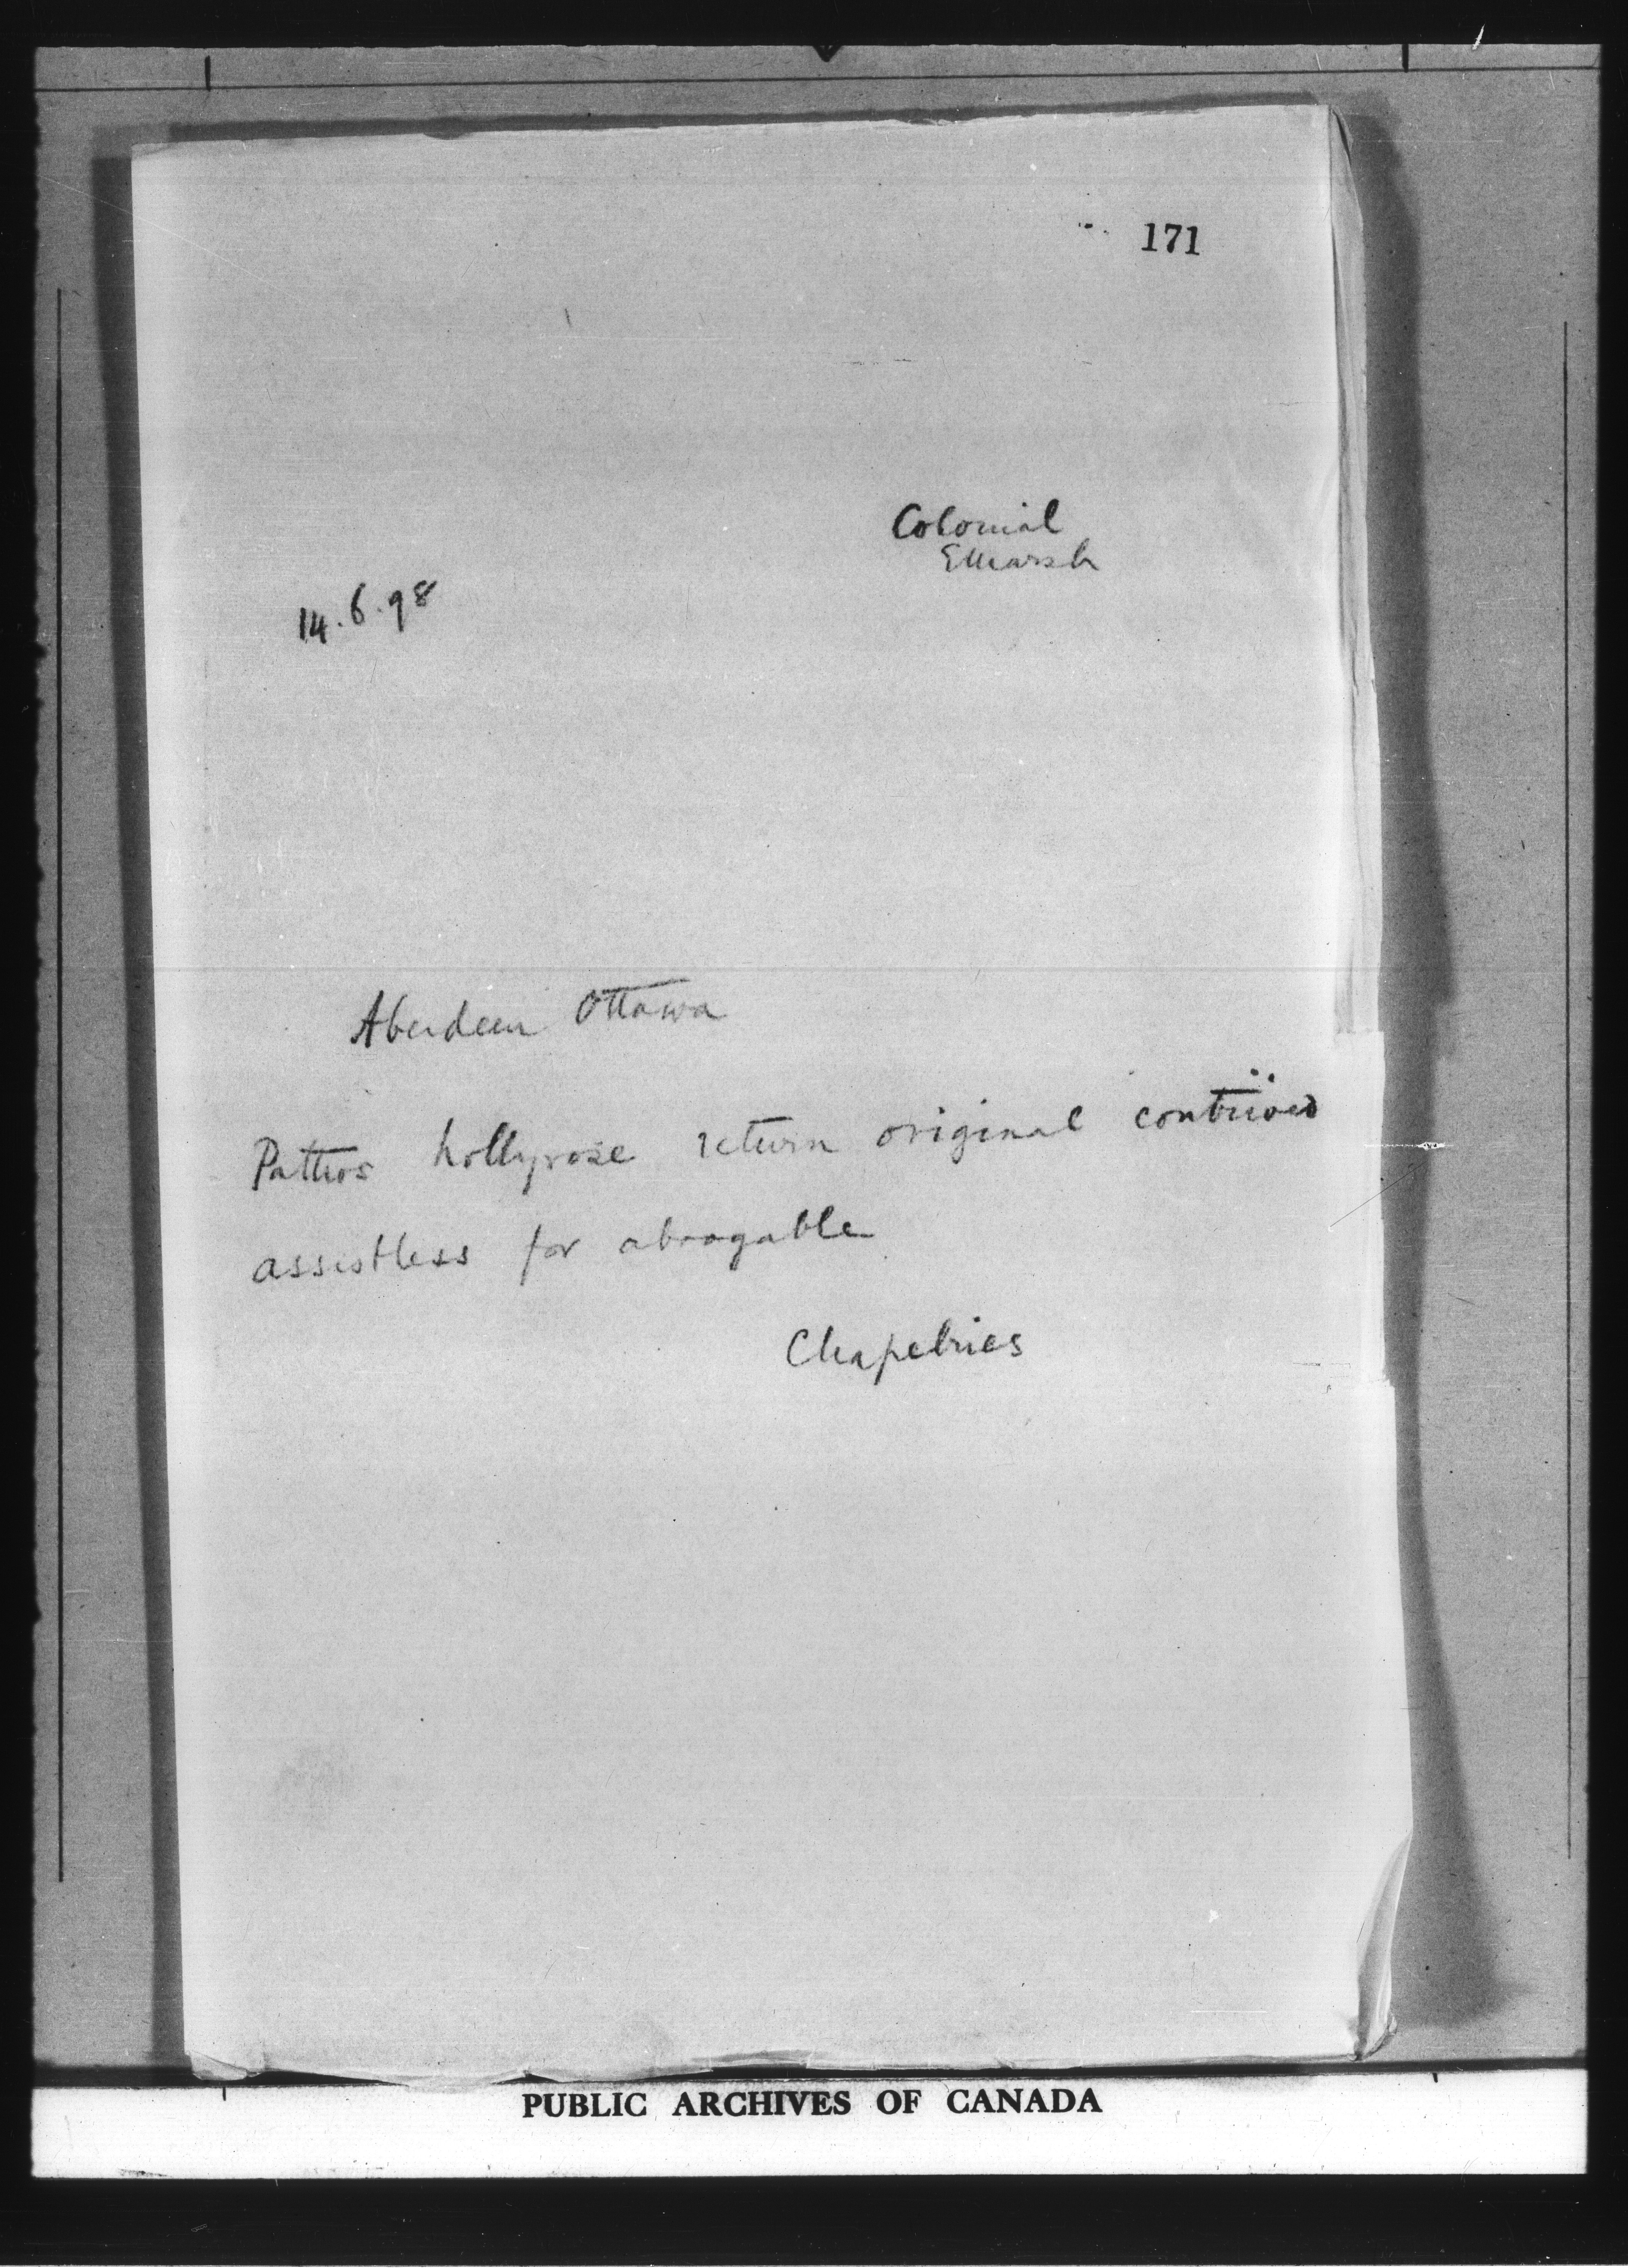 171
Colonial
EMarsh
14.6.98
Aberdeen Ottawa
Pattros hollyrose return original
assistless for
Chapelries
PUBLIC ARCHIVES OF CANADA